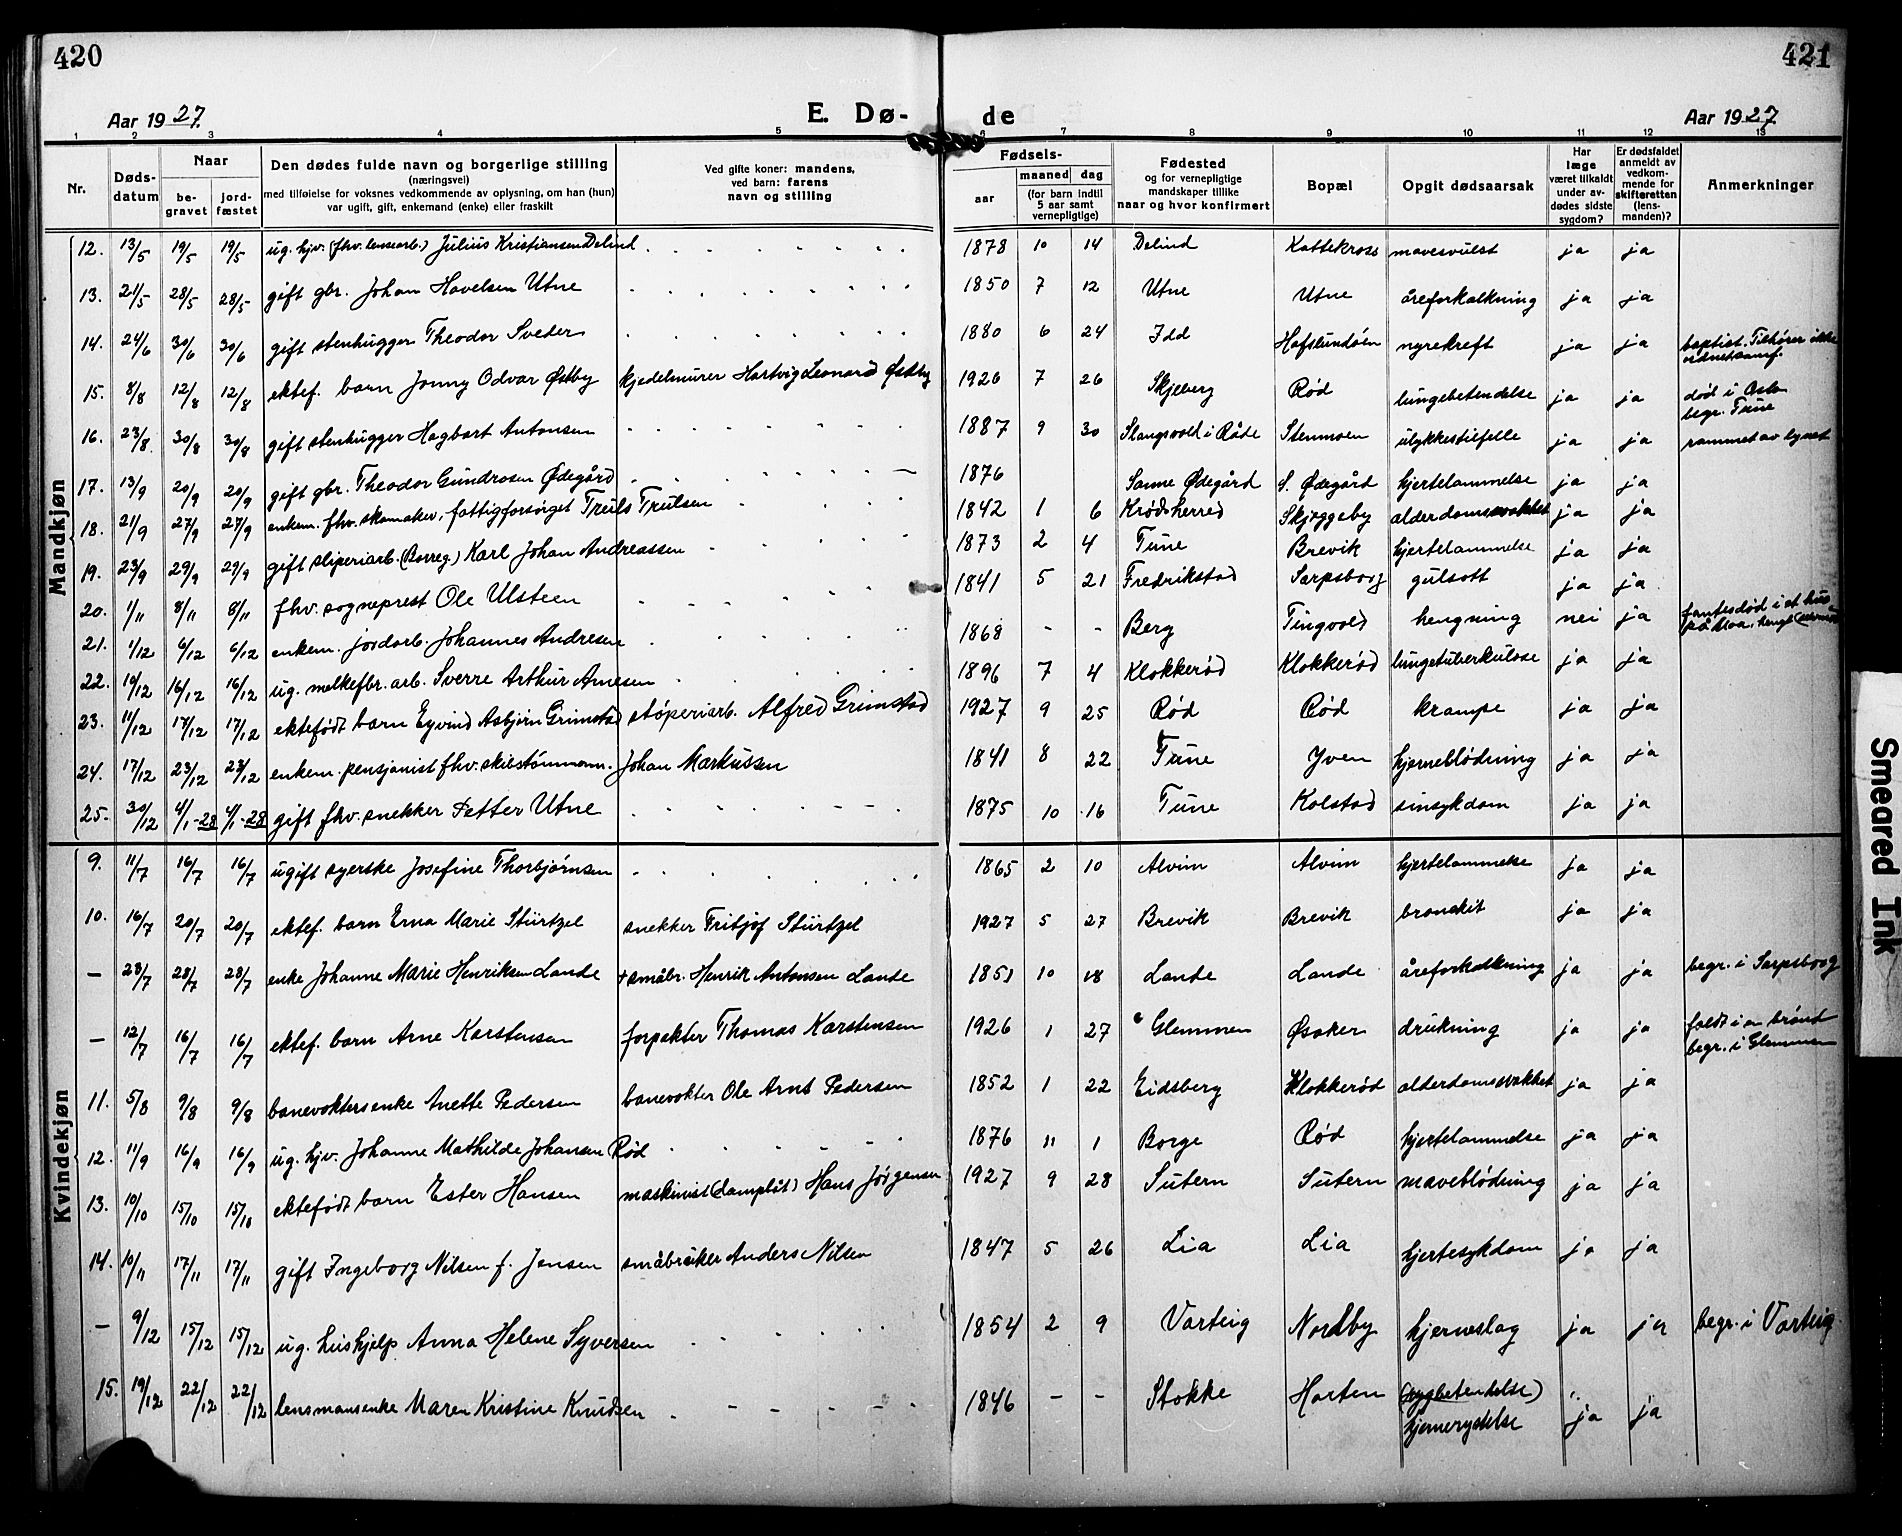 420
421
Aar 1927.
E. Dø-
de
Aar 1927
1 2 3 4 5 6 7 8 9 10 11 12 13
Nr.
Døds-
datum
Naar
be-
gravet
jord-
fæstet
Den dødes fulde navn og borgerlige stilling
(næringsvei)
med tilføielse for voksnes vedkommende av oplysning, om han (hun)
var ugift, gift, enkemand (enke) eller fraskilt
Ved gifte koner: mandens,
ved barn: farens
navn og stilling
Fødsels-
aar
maaned
dag
(for barn indtil
5 aar samt
vernepligtige)
Fødested
og for vernepligtige
mandskaper tillike
naar og hvor konfirmert
Bopæl
Opgit dødsaarsak
Har
læge
været tilkaldt
under av-
dødes sidste
sygdom?
Er dødsfaldet
anmeldt av
vedkom-
mende for
skifteretten
(lens-
manden)?
Anmerkninger
Mandkjøn
12. 13/5 19/5 19/5 ug. hjv. (fhv. lensearb.) Julius Kristiansen Delind 1878 10 14 Delind Kattekross mavesvulst ja ja
13. 21/5 28/5 28/5 gift gbr. Johan Havelsen Utne 1850 7 12 Utne Utne åreforkalkning ja ja
14. 24/6 30/6 30/6 gift stenhugger Theodor Sveder 1880 6 24 Idd Hafslundsøen nyrekreft ja ja baptist. Tilhører ikke
ordnet samf.
15. 8/8 12/8 12/8 ektef. barn Jonny Odvar Østby kjedelmurer Hartvig Leonard Østby 1926 7 26 Skjeberg Rød lungebetendelse ja ja død i Oslo
begr. Tune
16. 23/8 30/8 30/8 gift stenhugger Hagbart Antonsen 1887 9 30 Slangsvold i Råde Stenmoen ulykkestilfelle ja ja rammet av lynet
17. 13/9 20/9 20/9 gift gbr. Theodor Gundrosen Ødegård 1876 Sanne Ødegård S. Ødegård hjertelammelse ja ja
18. 21/9 27/9 27/9 enkem. fhv. skomaker, fattigforsørget Truls Trulsen 1842 1 6 Krødsherred Skjøggeby alderdomssvakhet ja ja
19. 23/9 29/9 29/9 gift sliperiarb. (Borreg.) Karl Johan Andreassen 1873 2 4 Tune Brevik hjertelammelse ja ja
20. 1/11 8/11 8/11 fhv. sogneprest Ole Ulsteen 1841 5 21 Fredrikstad Sarpsborg gulsott ja ja
21. 1/12 6/12 6/12 enkem. jordarb. Johannes Andresen 1868 - - Berg Tingvold hengning nei ja fantes død i et hus
på Moa, hengt
22. 10/12 16/12 16/12 ug. melkefbr. arb. Sverre Arthur Arnesen 1896 7 4 Klokkerød Klokkerød lungetuberkulose ja ja
23. 11/12 17/12 17/12 ektefødt barn Eyvind Asbjørn Grimstad støperiarb. Alfred Grimstad 1927 9 25 Rød Rød krampe ja ja
24. 17/12 23/12 23/12 enkem. pensjonist fhv. skibstømmerm. Johan Markussen 1841 8 22 Tune Yven hjerneblødning ja ja
25. 30/12 4/1-28 4/1-28 gift fhv. snekker Petter Utne 1875 10 16 Tune Kolstad sinsykdom ja ja
Kvindekjøn
9. 11/7 16/7 16/7 ugift syerske Josefine Thorbjørnsen 1865 2 10 Alvim Alvim hjertelammelse ja ja
10. 16/7 20/7 20/7 ektef. barn Erna Marie Stürtzel snekker Fritjof Stürtzel 1927 5 27 Brevik Brevik bronkit ja ja
- 23/7 28/7 28/7 enke Johanne Marie Henriksen Lande + småbr. Henrik Antonsen Lande 1851 10 18 Lande Lande åreforkalkning ja ja begr. i Sarpsborg
- 12/7 16/7 16/7 ektef. barn Arne Karstensen forpakter Thomas Karstensen 1926 1 27 Glemmen Øsaker drukning ja ja faldt i en brønd
begr. i Glemmen
11. 5/8 9/8 9/8 banevoktersenke Anette Pedersen banevokter Ole Arnt Pedersen 1852 1 22 Eidsberg Klokkerød alderdomssvakhet ja ja
12. 11/9 16/9 16/9 ug. hjv. Johanne Mathilde Johansen Rød 1876 11 1 Borge Rød hjertelammelse ja ja
13. 10/10 15/10 15/10 ektefødt barn Ester Hansen maskinist (damplåt) Hans Jørgensen 1927 9 28 Sutern Sutern maveblødning ja ja
14. 10/11 17/11 17/11 gift Ingeborg Nilsen f. Jensen småbruker Anders Nilsen 1847 5 26 Lia Lia hjertesykdom ja ja
- 9/12 15/12 15/12 ug. hushjelp Anna Helene Syversen 1854 2 9 Varteig Nordby hjerneslag ja ja begr. i Varteig
15. 19/12 22/12 22/12 lensmansenke Maren Kristine Knudsen 1846 - - Stokke Horten (rygbetendelse)
hjernerystelse ja ja
Smeared Ink